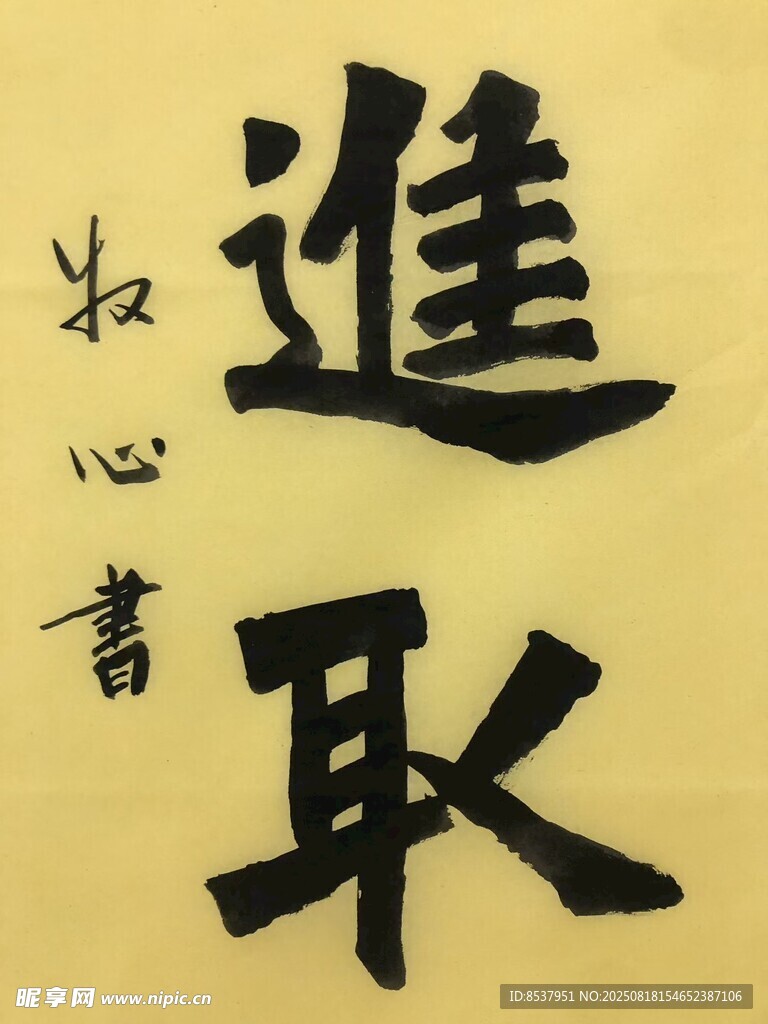 進取
牧心書
昵享网 www.nipic.cn
ID:8537951 NO:20250818154652387106